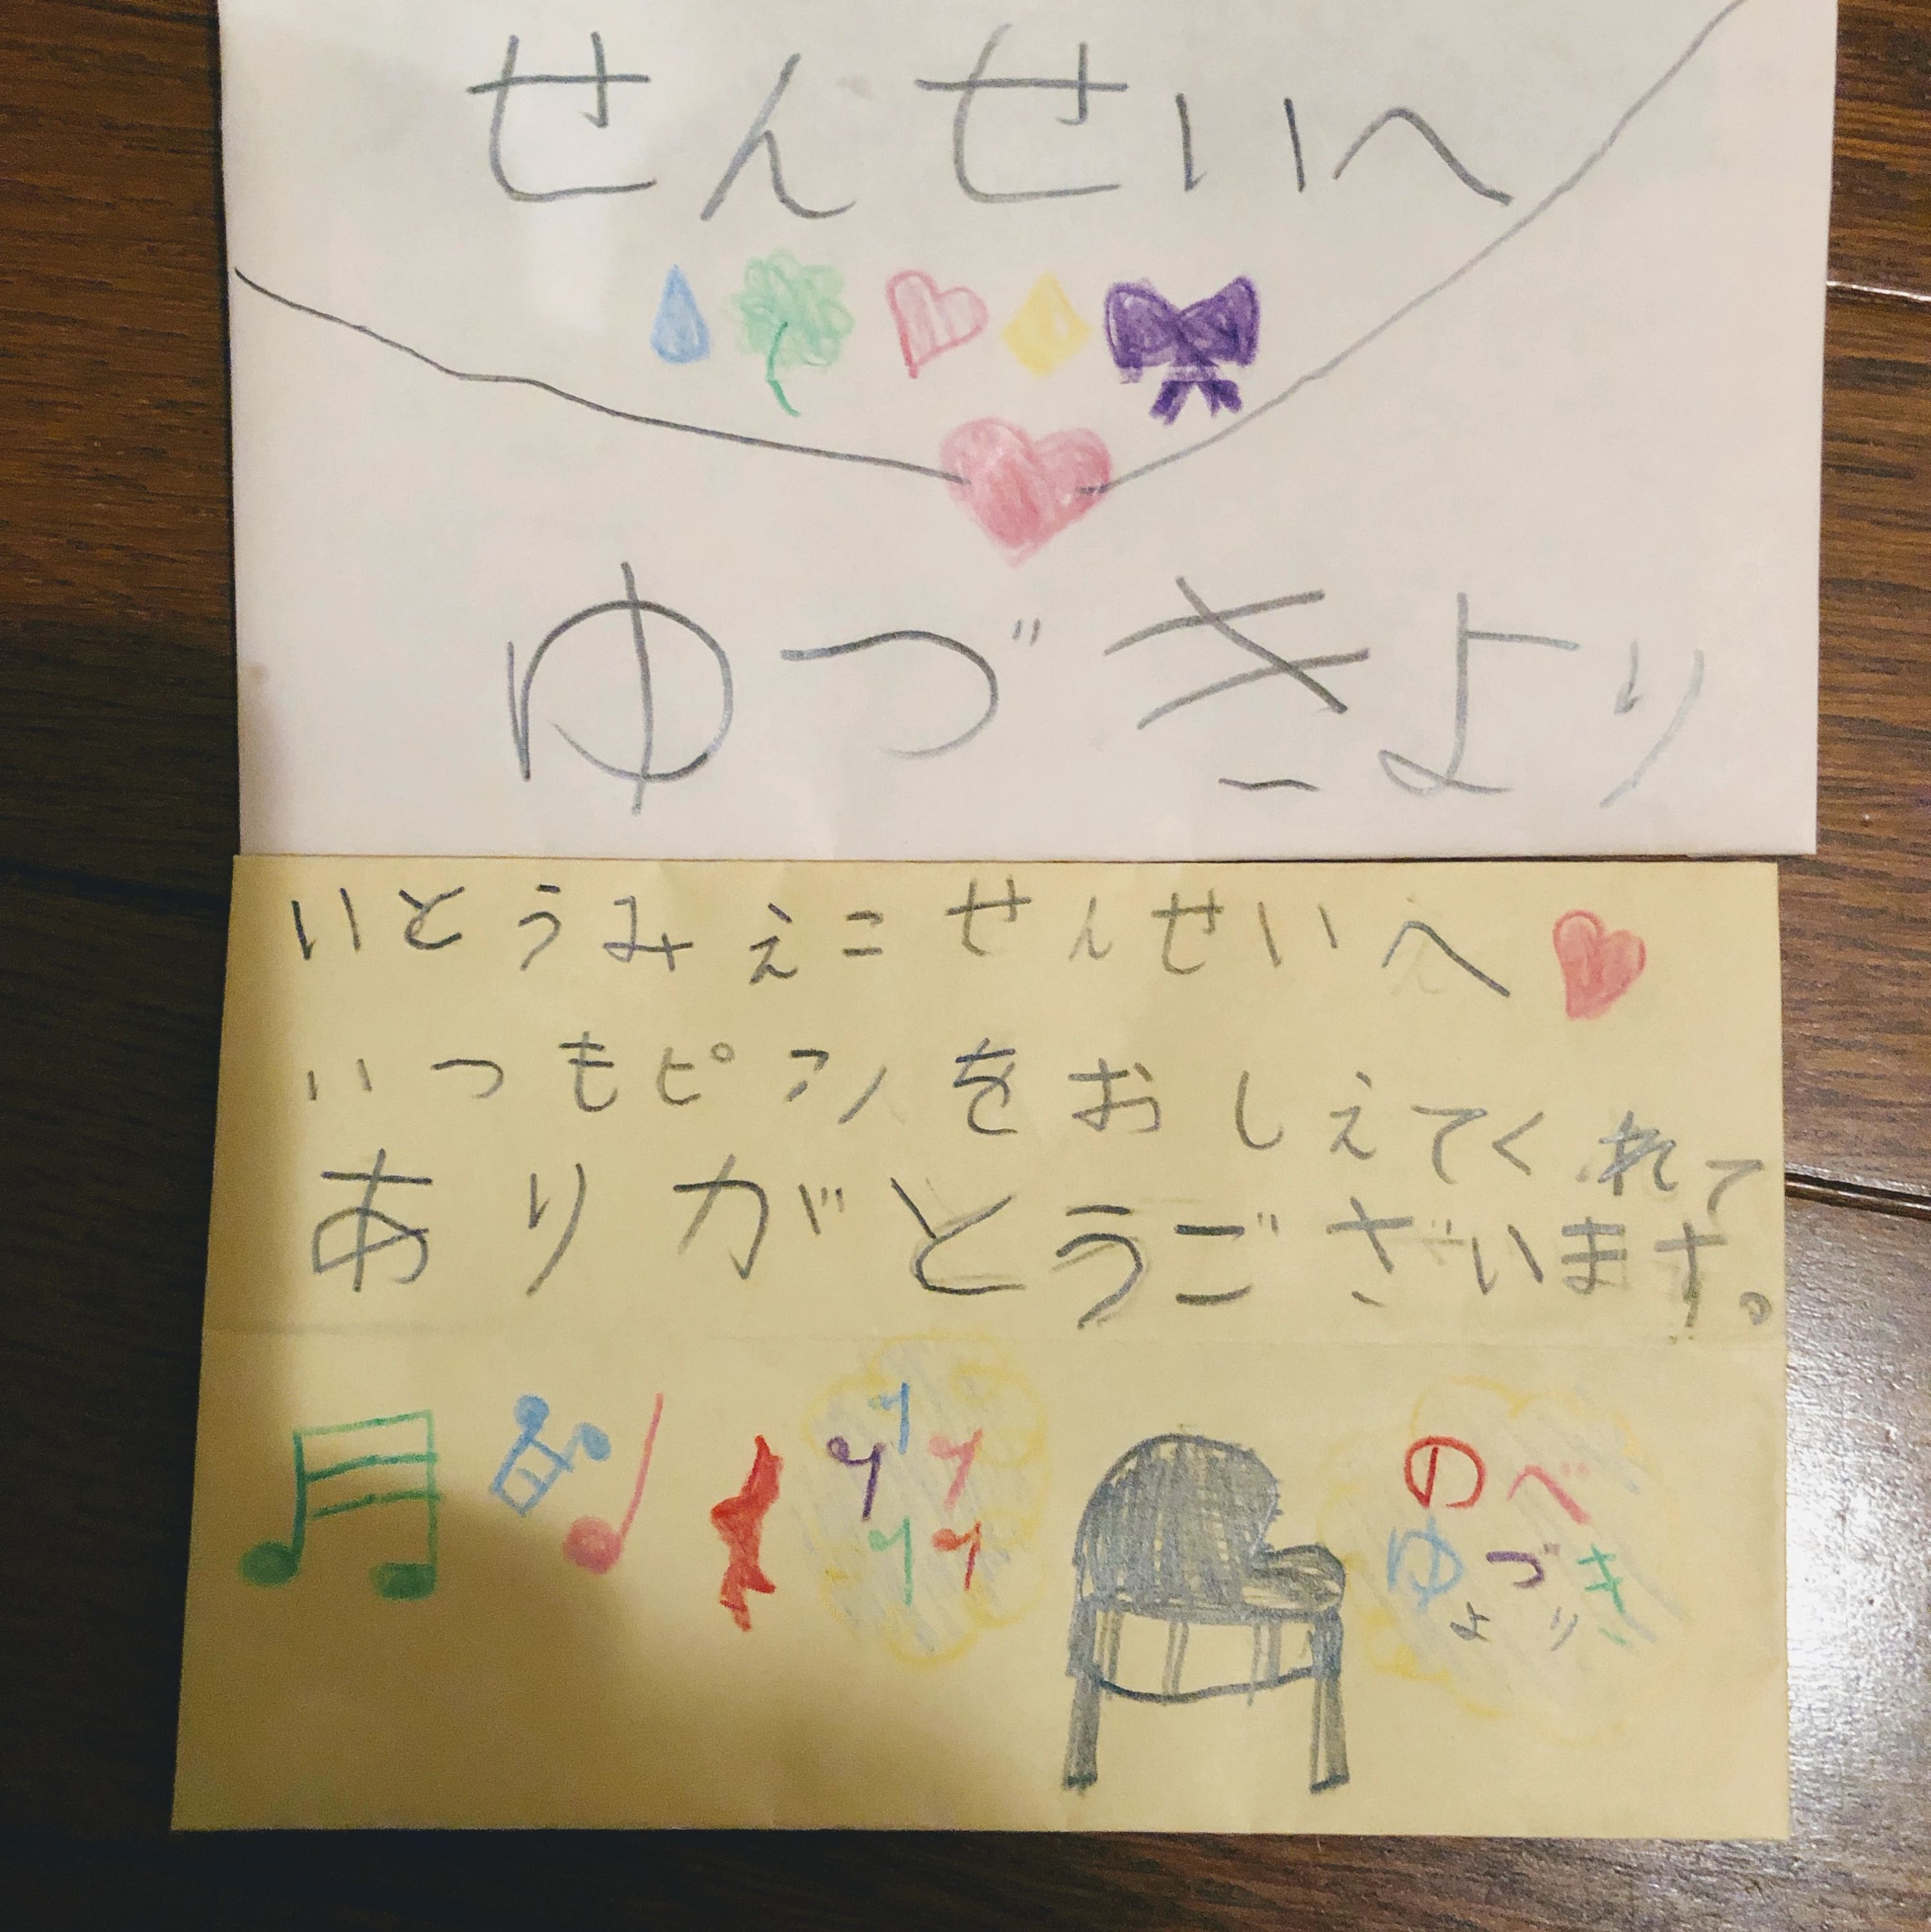 せんせいへ
ゆづきより
いとうみえこせんせいへ
いつもピアノをおしえてくれて
ありがとうございます。
のべ
ゆづき
より